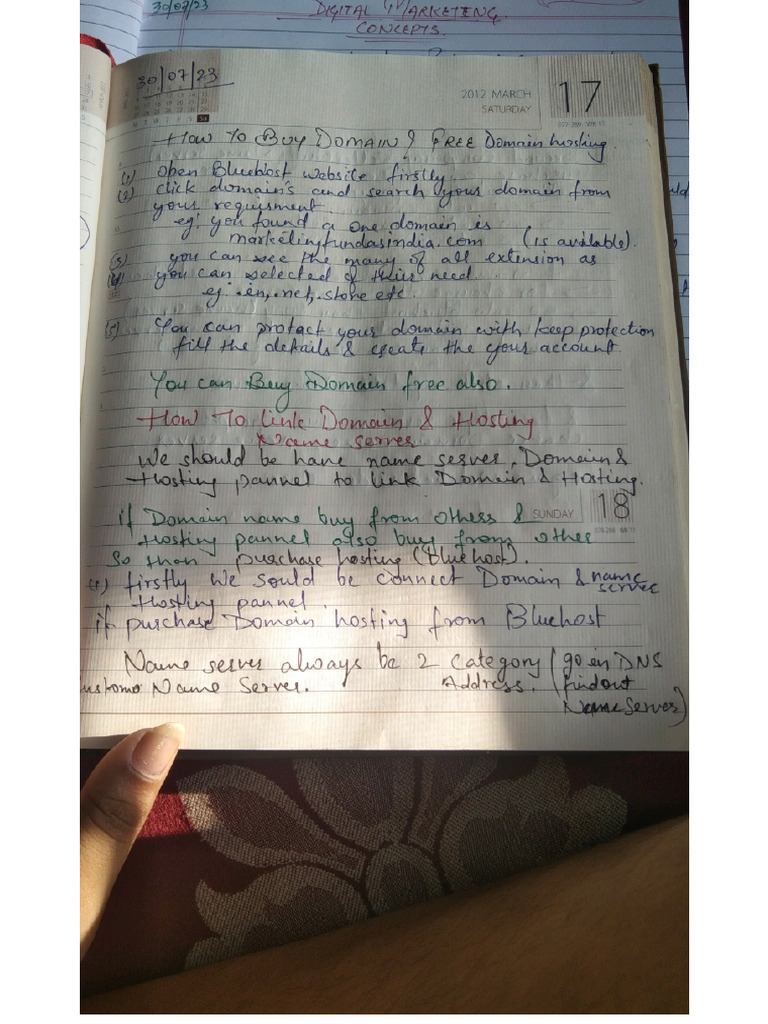 30/07/23
DIGITAL MARKETING
CONCEPTS.
30/07/23
2012 MARCH
SATURDAY
17
HOW TO BUY DOMAIN & FREE Domain hosting.
(1) open Bluehost website firstly.
(2) click domain's and search your domain from
your requisment.
eg: you found a one domain is
marketingfundasindia.com (is available).
(3) you can see the many of all extension as
(4) you can selected of their need.
eg: .in, .net, .store etc
(5) You can protact your domain with keep protection
fill the details & create the your account.
You can Buy Domain free also.
How To link Domain & Hosting
Name server
We should be have name server, Domain &
Hosting pannel to link Domain & Hosting.
SUNDAY
18
if Domain name buy from others &
Hosting pannel also buy from other
So then purchase hosting (bluehost).
firstly we sould be connect Domain & name server
Hosting pannel.
if purchase Domain hosting from Bluehost
Name server always be 2 category (go in DNS
ustoma Name Server. Address. (findout
Name Server)